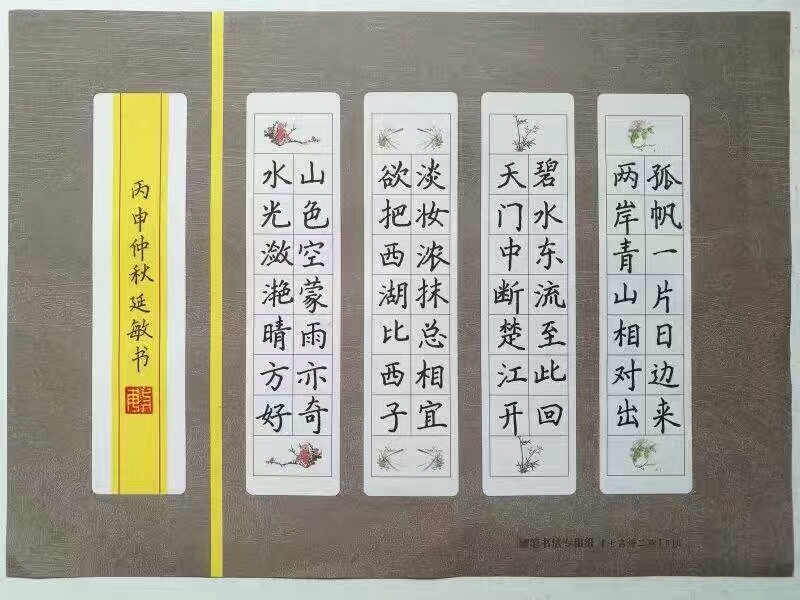 水光潋滟晴方好
山色空蒙雨亦奇
欲把西湖比西子
淡妆浓抹总相宜
天门中断楚江开
碧水东流至此回
两岸青山相对出
孤帆一片日边来
丙申仲秋延敏书